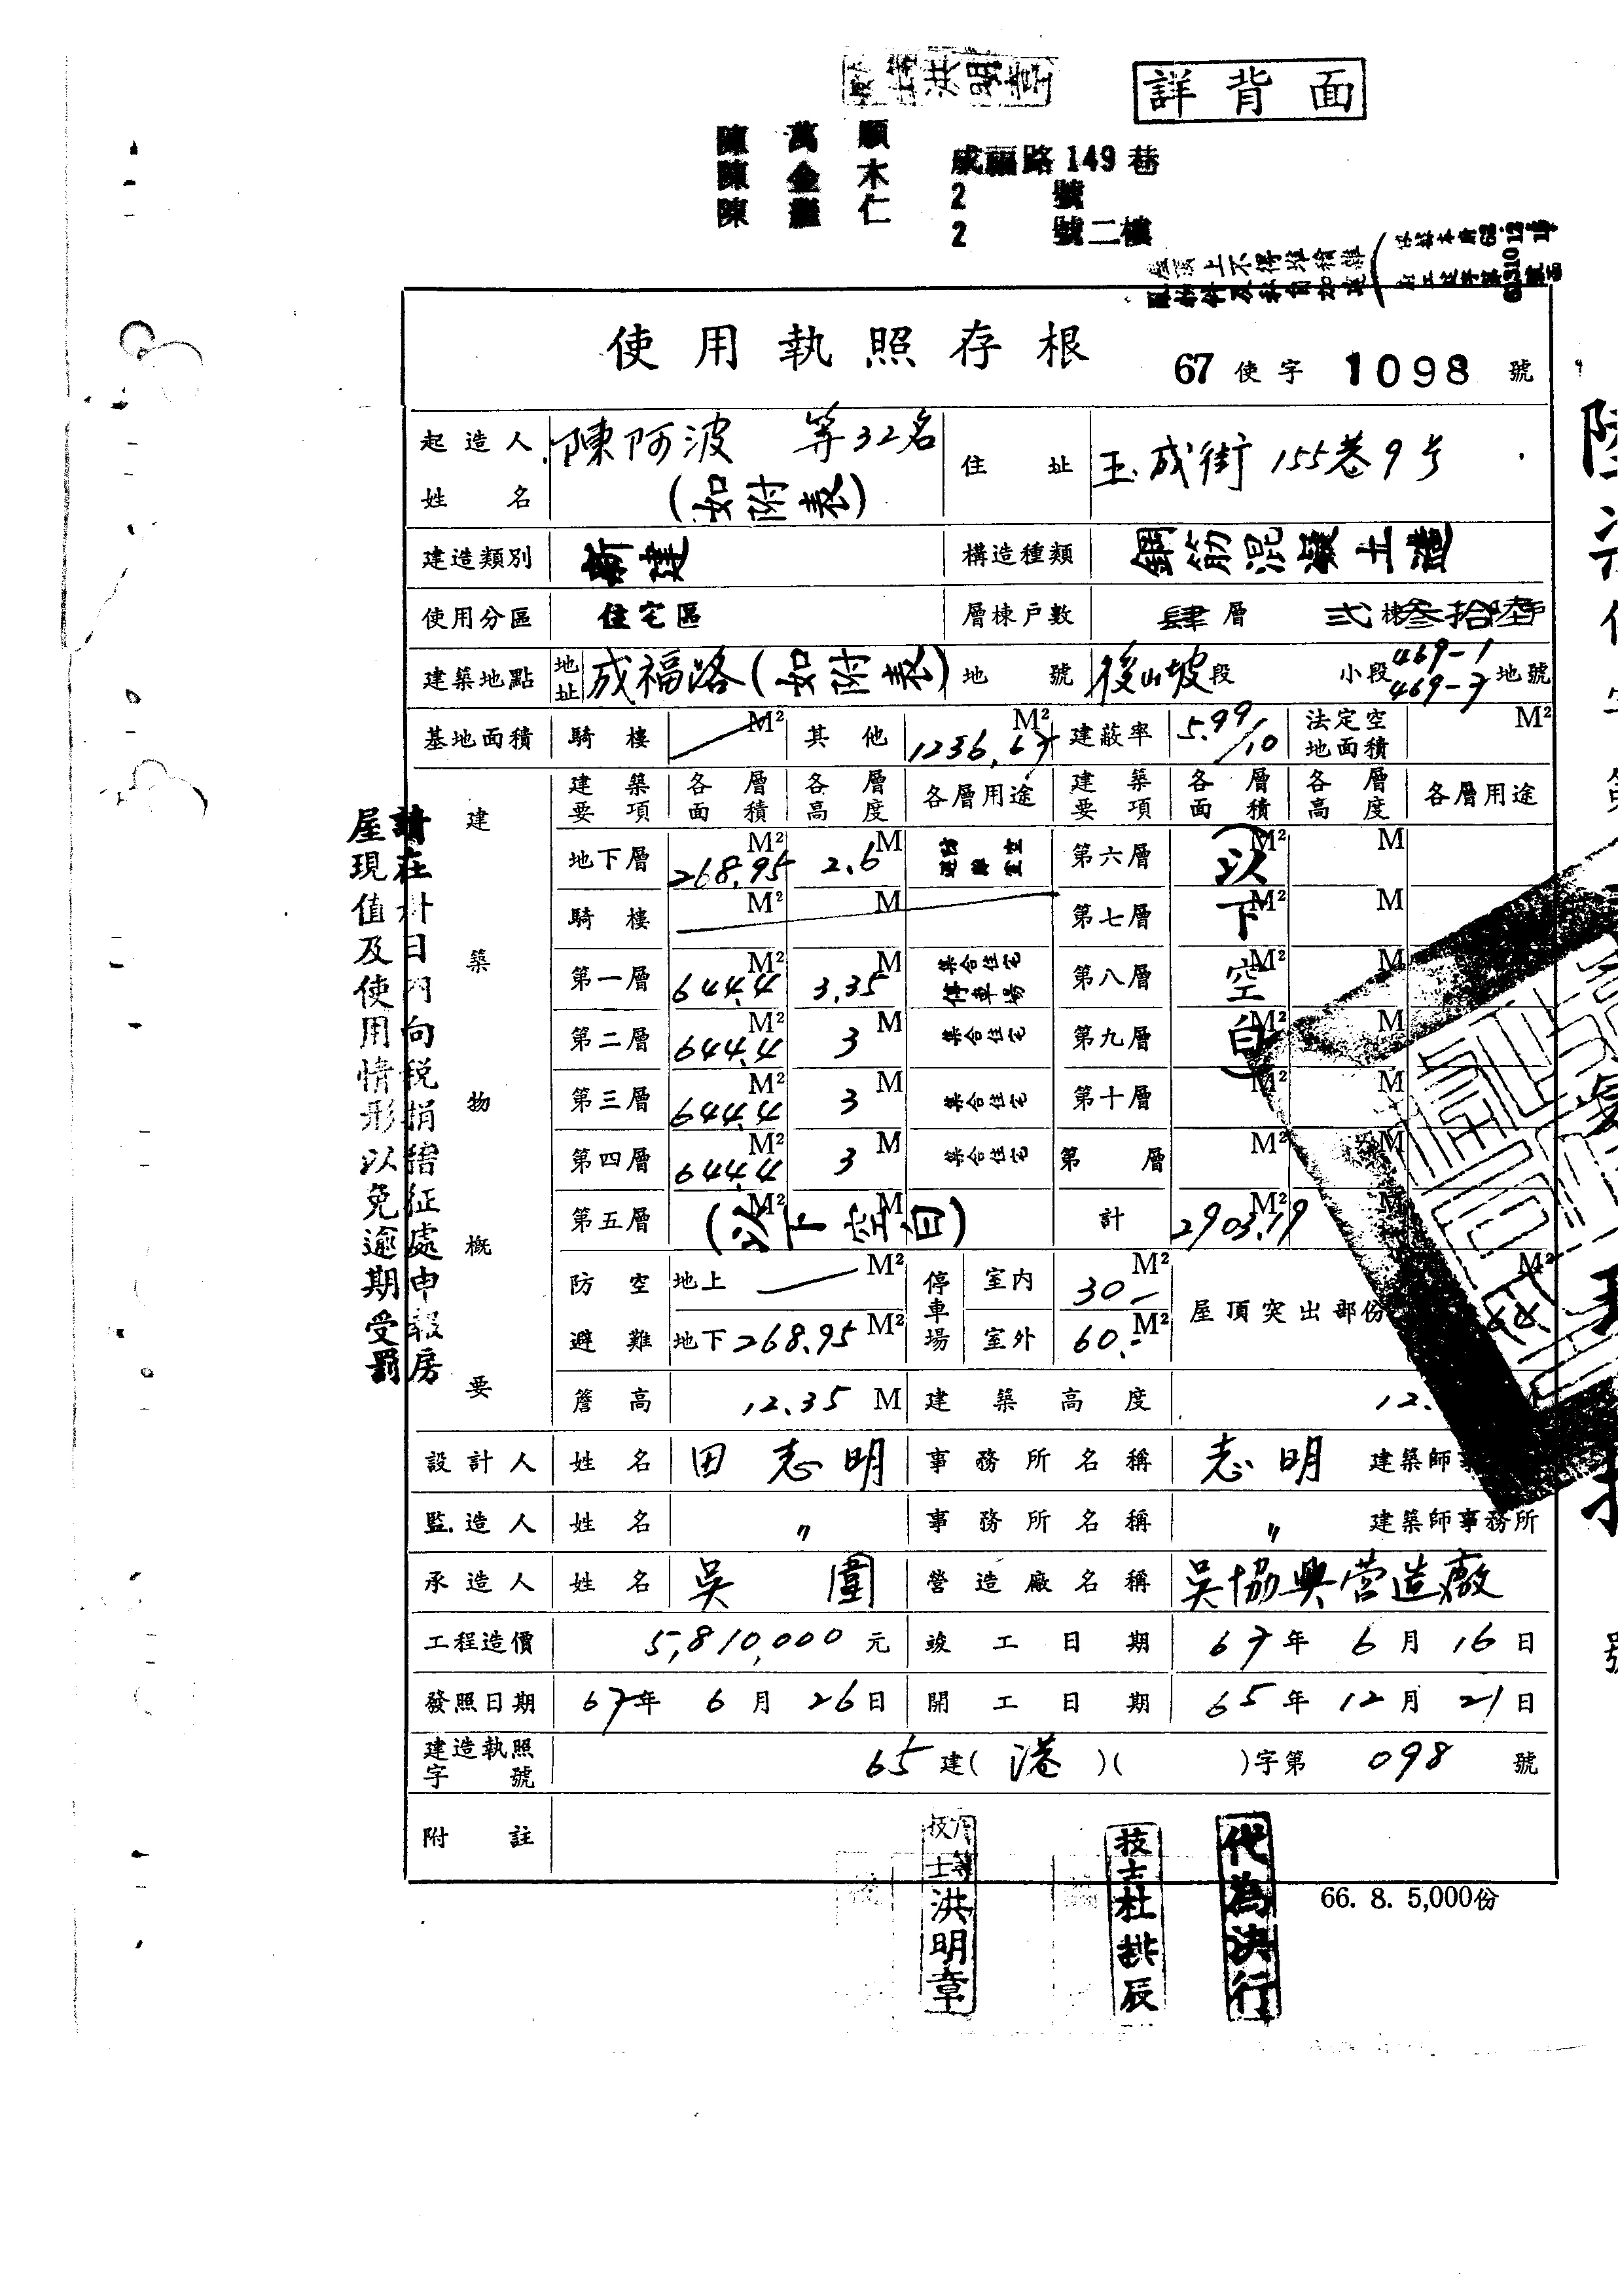 洪明章
詳背面
陳萬順
陳金木
陳 仁
成福路149巷
2 號
2 號二樓
屋頂上不得堆積雜
使用執照存根
67使字1098號
起造人姓名 陳阿波 等32名 (如附表) 住址 玉成街155巷9号
建造類別 新建 構造種類 鋼筋混凝土造
使用分區 住宅區 層棟戶數 肆層 弍棟叁拾陸戶
建築地點 地址 成福路(如附表) 地號 後山坡段 小段 469-1 469-7 地號
基地面積 騎樓 M² 其他 1236.67 M² 建蔽率 5.99/10 法定空地面積 M²
建築物概要
建築要項 各層面積 各層高度 各層用途 建築要項 各層面積 各層高度 各層用途
地下層 268.95 M² 2.6 M 第六層 M² M
騎樓 M² M 第七層 M² M
第一層 644.4 M² 3.35 M 集合住宅 停車場 第八層 M² M
第二層 644.4 M² 3 M 集合住宅 第九層 M² M
第三層 644.4 M² 3 M 集合住宅 第十層 M² M
第四層 644.4 M² 3 M 集合住宅 第 層 M² M
第五層 M² M (以下空白) 計 2903.19 M² M
(以下空白)
防空避難 地上 M² 停車場 室內 30- M² 屋頂突出部份 M²
地下 268.95 M² 室外 60.- M²
簷高 12.35 M 建築高度 12.
設計人 姓名 田志明 事務所名稱 志明 建築師事
監造人 姓名 〃 事務所名稱 〃 建築師事務所
承造人 姓名 吳圍 營造廠名稱 吳協興营造廠
工程造價 5,810,000元 竣工日期 67年6月16日
發照日期 67年6月26日 開工日期 65年12月21日
建造執照字號 65建(港)( )字第098號
附註
請在卅日內向稅捐稽征處申報房
屋現值及使用情形以免逾期受罰
洪明章
技士杜 辰
代為決行
66. 8. 5,000份